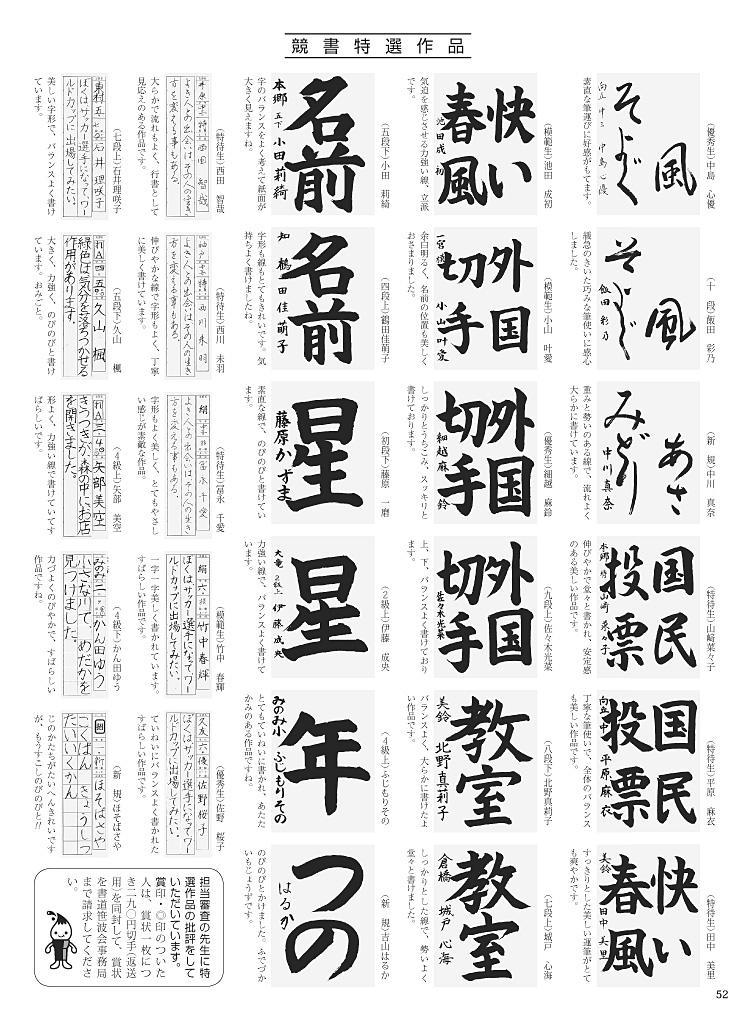 競書特選作品
風
そよぐ
向丘中一 中島心優
(優秀生)中島　心優
素直な筆運びに好感がもてます。
風
そよぐ
飯田彩乃
(十　段)飯田　彩乃
緩急のきいた巧みな筆使いに感心
しました。
あさ
みどり
中川真奈
(新　規)中川　真奈
重みと勢いのある線で、流れよく
大らかに書けています。
国民
投票
山﨑菜々子
(特待生)山﨑菜々子
伸びやかで堂々と書かれ、安定感
のある美しい作品です。
国民
投票
向丘中 平原麻衣
(特待生)平原　麻衣
丁寧な筆使いで、全体のバランス
も美しい作品です。
快い
春風
美鈴 田中美里
(特待生)田中　美里
すっきりとした美しい運筆がとて
も爽やかです。
快い
春風
池田成初
(模範生)池田　成初
気迫を感じさせる力強い線、立派
です。
外国
切手
小山叶愛
(模範生)小山　叶愛
余白明るく、名前の位置も美しく
おさまりました。
外国
切手
細越麻鈴
(優秀生)細越　麻鈴
しっかりとうちこみ、スッキリと
書けております。
外国
切手
佐々木光菜
(九段上)佐々木光菜
上、下、バランスよく書けており
ます。
教室
美鈴 北野真莉子
(八段下)北野真莉子
バランスよく、大らかに書けたよ
い作品です。
教室
倉橋 城戸心海
(七段上)城戸　心海
しっかりとした線で、勢いよく
堂々と書けました。
名前
本郷 五下 小田莉綺
(五段下)小田　莉綺
字のバランスをよく考えて紙面が
大きく見えますね。
名前
知 鶴田佳萌子
(四段上)鶴田佳萌子
字形も線もとてもきれいです。気
持ちよく書けましたね。
星
藤原かずま
(初段下)藤原　一磨
素直な線で、のびのびと書けてい
ます。
星
大竜 2級上 伊藤成央
(2級上)伊藤　成央
力強い線で、バランスよく書けて
います。
年
みのみ小 ふじもりその
(4級上)ふじもりその
とてもていねいに書かれ、あたた
かみのある作品です。
つの
はるか
(新　規)吉山はるか
のびのびとかけました。ふでづか
いもじょうずです。
西田智哉
よき人との出会いはその人の生き
方を変える事もある。
(特待生)西田　智哉
大らかで流れもよく、行書として
見応えのある作品です。
西川未羽
よき人との出会いはその人の生き
方を変える事もある。
(特待生)西川　未羽
伸びやかな線で字形もよく、丁寧
に美しく書けています。
絹 冨永千愛
よき人との出会いはその人の生き
方を変える事もある。
(特待生)冨永　千愛
字形もよく美しく、とてもやさし
い感じが素敵な作品。
絹 六 竹中春輝
ぼくはサッカー選手になってワー
ルドカップに出場してみたい。
(模範生)竹中　春輝
一字一字美しく書かれています。
すばらしい作品です。
久友 六 優 佐野桜子
ぼくはサッカー選手になってワー
ルドカップに出場してみたい。
(優秀生)佐野　桜子
ていねいにバランスよく書かれた
すばらしい作品です。
東村 五 石井理咲子
ぼくはサッカー選手になってワー
ルドカップに出場してみたい。
(七段上)石井理咲子
美しい字形で、バランスよく書け
ています。
久山楓
緑色は気分を落ちつかせる
作用があります。
(五段下)久山　楓
大きく、力強く、のびのびと書け
ています。おみごと。
矢部美空
きつつきが森の中にお店
を開きました。
(4級上)矢部　美空
形よく、力強い線で書けていてす
ばらしいです。
みのみ 二 かん田ゆう
小さな川で、めだかを
見つけました。
(4級下)かん田ゆう
力づよくのびやかで、すばらしい
作品ですね。
一 新 ほそばさや
こくばん　きょうしつ
たいいくかん
(新　規)ほそばさや
じのかたちがたいへんきれいです
が、もうすこしのびのびと!!
担当審査の先生に特
選作品の批評をして
いただいています。
賞印・◎印のついた
人は、賞状一枚につ
き二九〇円切手(返送
用)を同封して、賞状
を書道笹波会事務局
まで請求してくださ
い。
52